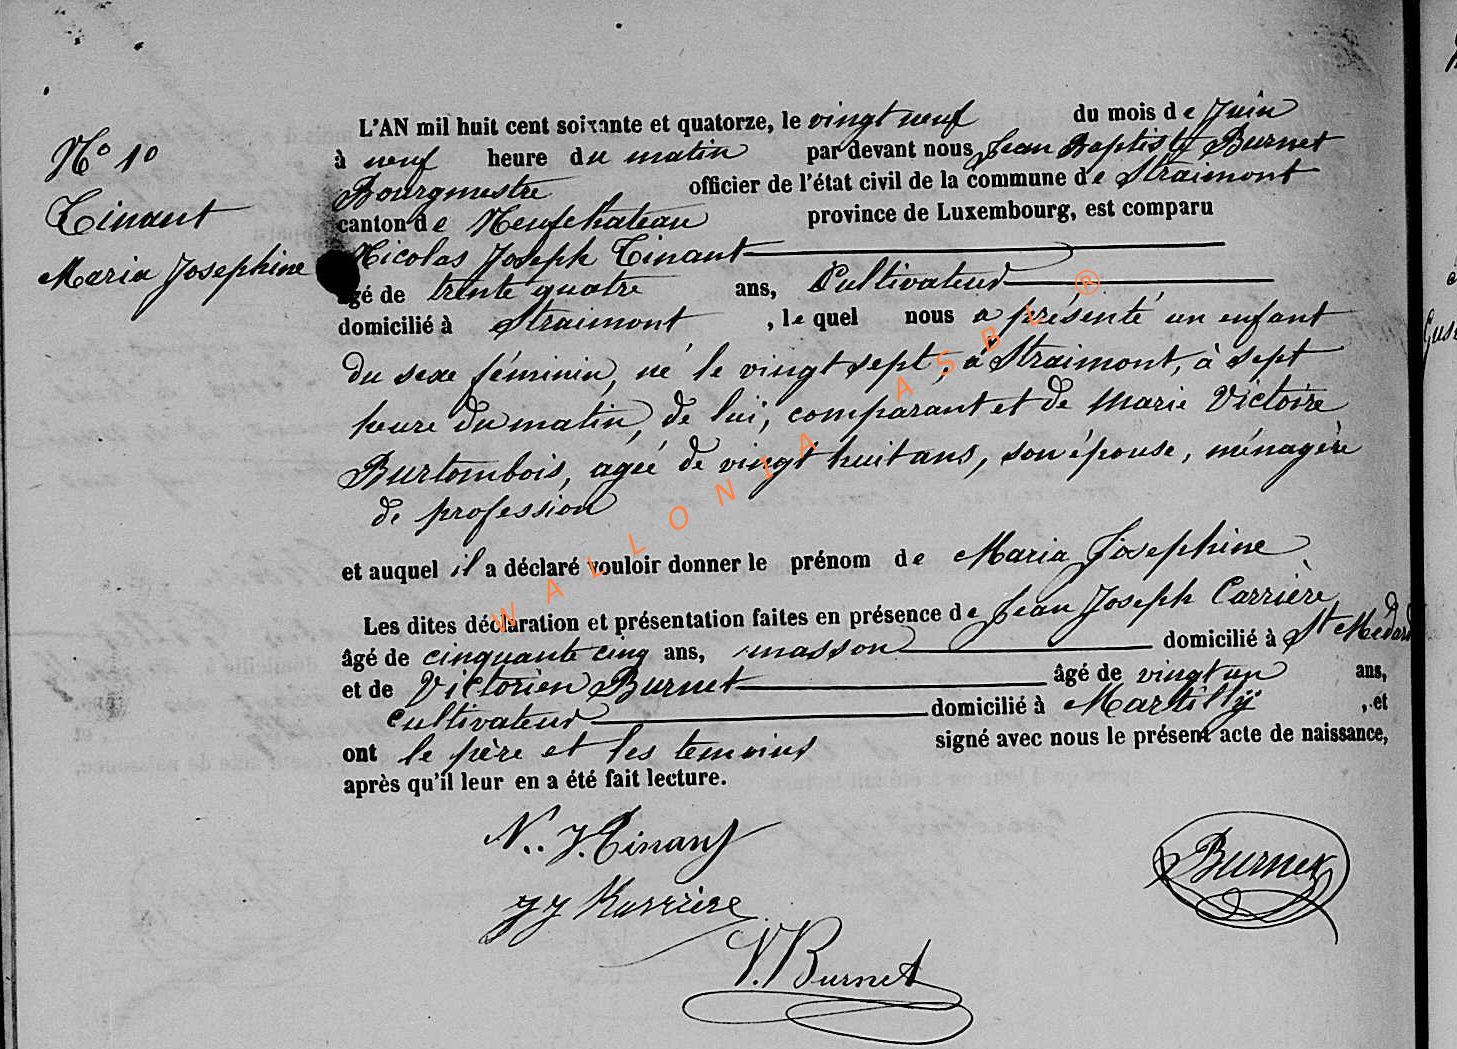 Nº 10
Tinant
Maria Josephine
L'AN mil huit cent soixante et quatorze, le vingt neuf du mois de Juin
à neuf heure du matin par devant nous Jean Baptiste Burnet
Bourgmestre officier de l'état civil de la commune de Straimont
canton de Neufchateau province de Luxembourg, est comparu
Nicolas Joseph Tinant
âgé de trente quatre ans, Cultivateur
domicilié à Straimont , le quel nous a présenté un enfant
du sexe féminin, né le vingt sept, à Straimont, à sept
heure du matin, de lui, comparant et de Marie Victoire
Burtombois, ageé de vingt huit ans, son épouse, ménagère
de profession
et auquel il a déclaré vouloir donner le prénom de Maria Josephine
Les dites déclaration et présentation faites en présence de Jean Joseph Carrière
âgé de cinquante cinq ans, masson domicilié à St Médard
et de Victorien Burnet âgé de vingt un ans,
cultivateur domicilié à Martilly , et
ont le père et les temoins signé avec nous le présent acte de naissance,
après qu'il leur en a été fait lecture.
N. J. Tinant
Burnet
JJ Karriere
V. Burnet
WALLONIA ASBL ®